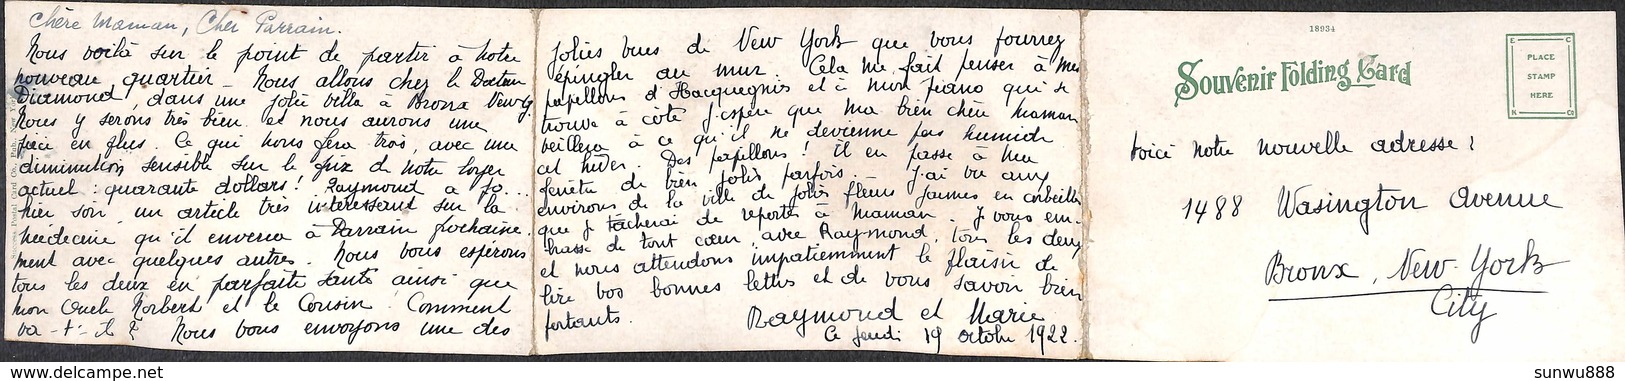 Chère Maman, Cher Parrain.
Nous voilà sur le point de partir à notre
nouveau quartier - Nous allons chez le Docteur
Diamond, dans une jolie villa à Bronx New-Y.
Nous y serons très bien et nous aurons une
pièce en plus. Ce qui nous fera trois, avec une
diminution sensible sur le prix de notre loyer
actuel : quarante dollars! Raymond a
hier soir un article très intéressant sur la
médecine qu'il enverra à Parrain prochaine-
ment avec quelques autres. Nous vous espérons
tous les deux en parfaite santé ainsi que
mon Oncle Norbert et le Cousin. Comment
va-t-il? Nous vous envoyons une des
jolies vues de New York que vous pourrez
épingler au mur. Cela me fait penser à mes
papillons d'Hacquegnies et à mon piano qui se
trouve à côté J'espère que ma bien chère Maman
veillera à ce qu'il ne devienne pas humide
cet hiver. Des papillons! Il en passe à ma
fenêtre de bien jolis parfois. J'ai vu aux
environs de la ville de jolies fleurs jaunes en corbeilles
que je tâcherai de reporter à Maman. Je vous em-
brasse de tout cœur, avec Raymond, tous les deux
et nous attendons impatiemment le plaisir de
lire vos bonnes lettres et de vous savoir bien
portants.
Raymond et Marie
Ce jeudi 19 octobre 1922.
18934
Souvenir Folding Card
E C
PLACE
STAMP
HERE
N Co
Voici notre nouvelle adresse:
1488 Wasington Avenue
Bronx, New-York
City
sunwu888